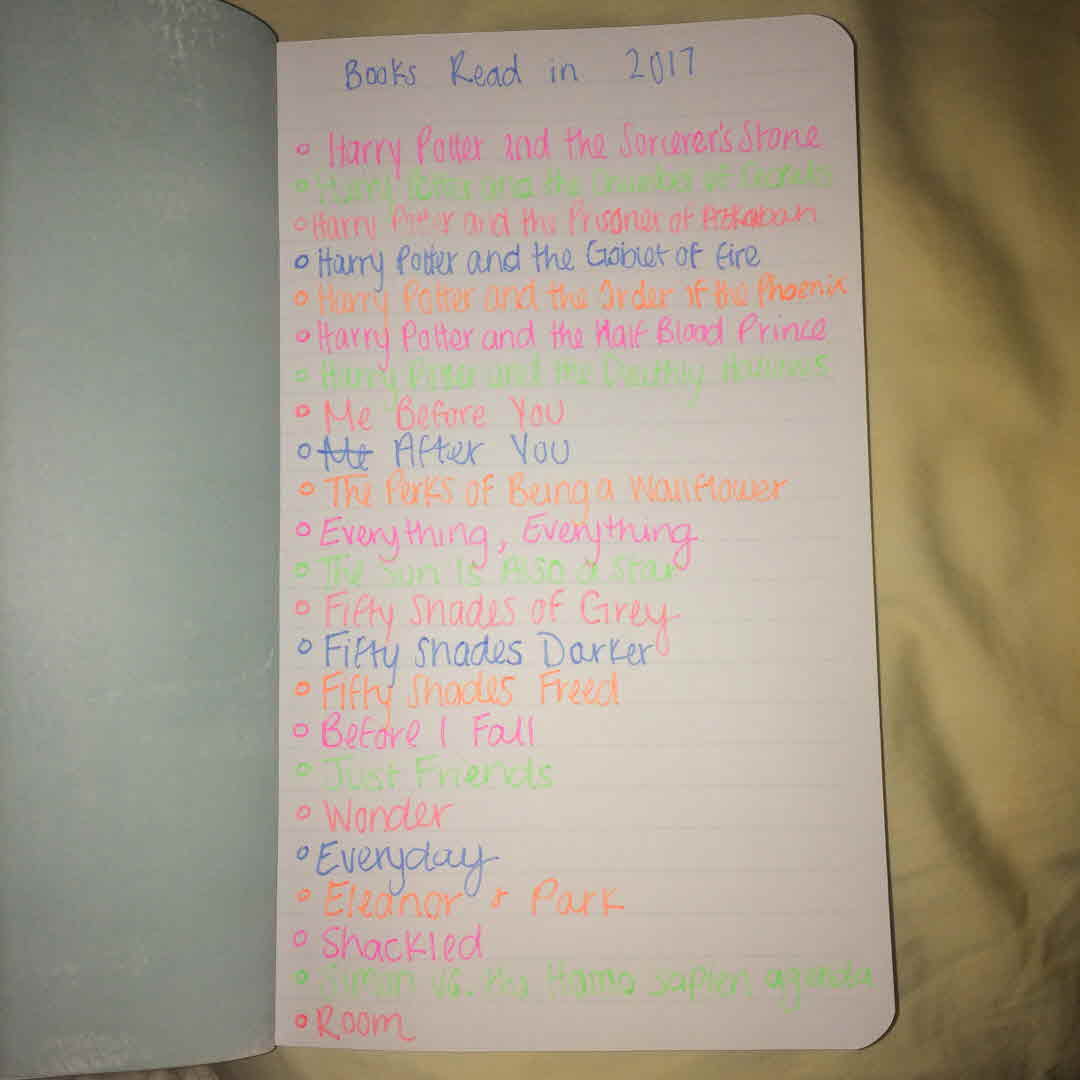 Books Read in 2017
Harry Potter and the Sorcerer's Stone
Harry Potter and the Chamber of Secrets
Harry Potter and the Prisoner of Azkaban
Harry Potter and the Goblet of Fire
Harry Potter and the Order of the Phoenix
Harry Potter and the Half Blood Prince
Harry Potter and the Deathly Hallows
Me Before You
Me After You
The Perks of Being a Wallflower
Everything, Everything
The Sun Is Also a Star
Fifty Shades of Grey
Fifty Shades Darker
Fifty Shades Freed
Before I Fall
Just Friends
Wonder
Everyday
Eleanor & Park
Shackled
Simon vs. the Homo sapien agenda
Room